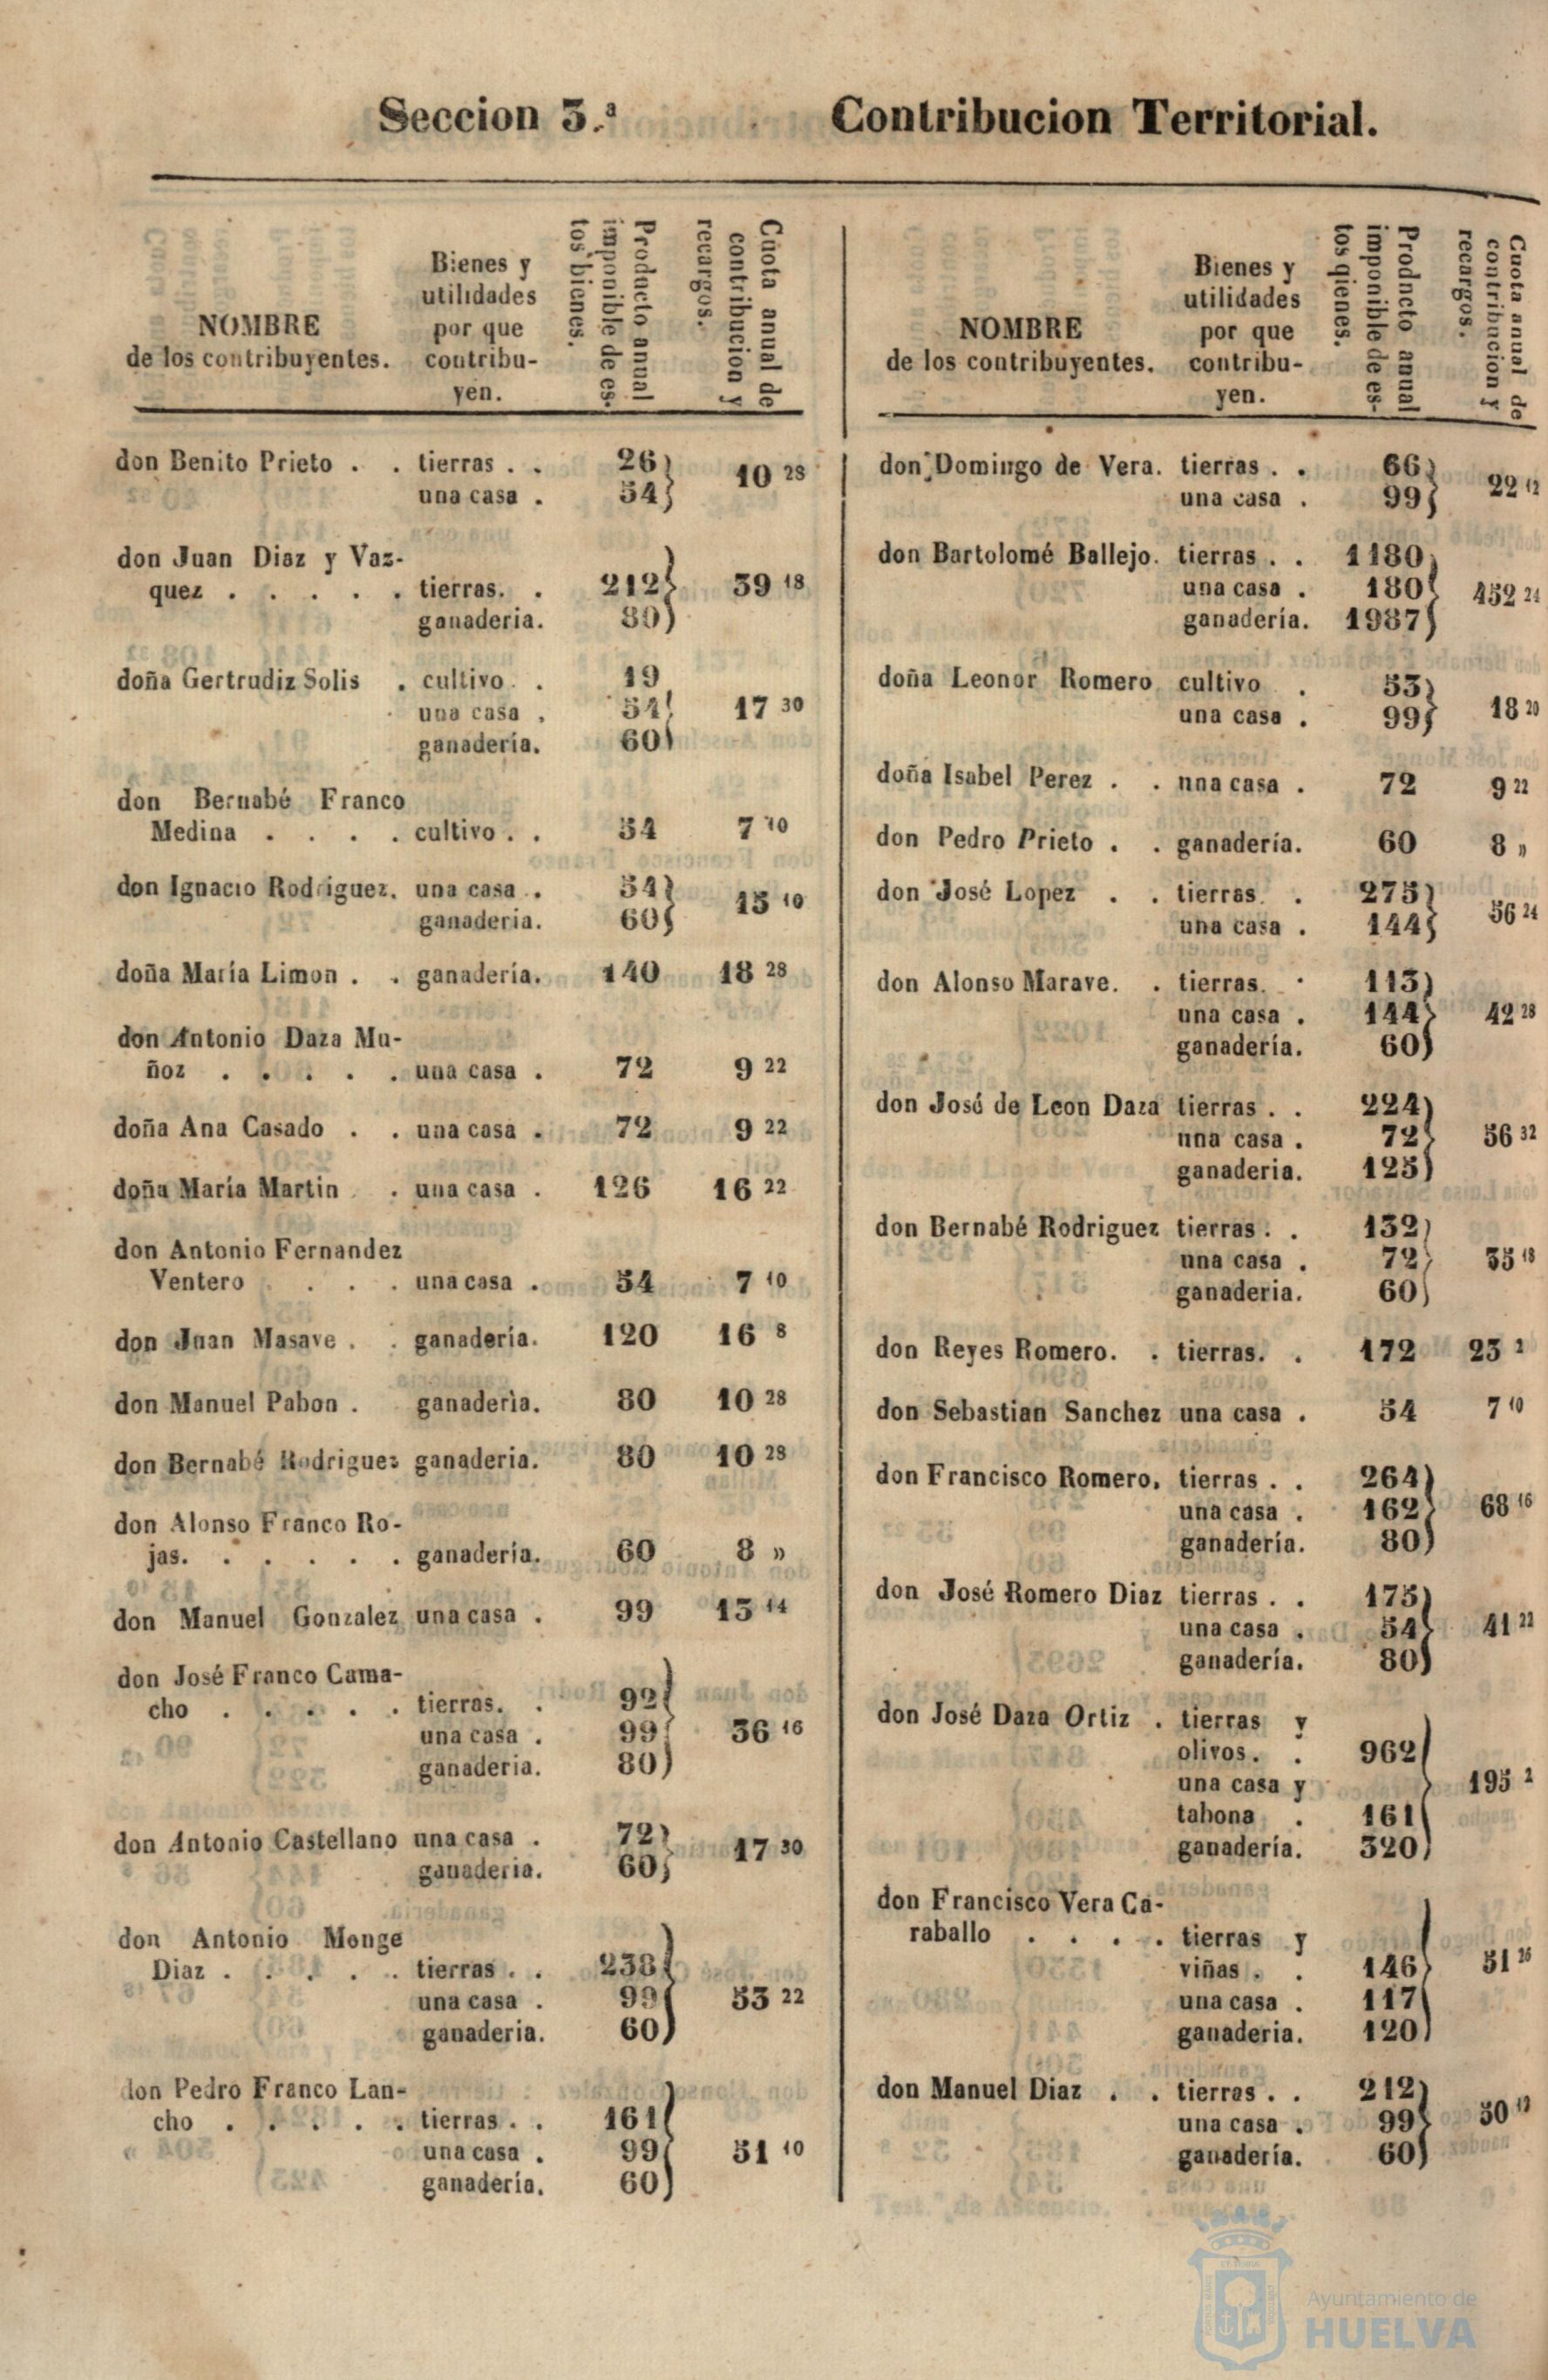 Seccion 3.ª Contribucion Territorial.
NOMBRE
de los contribuyentes.
Bienes y
utilidades
por que
contribu-
yen.
Producto anual
imponible de es-
tos bienes.
Cuota anual de
contribucion y
recargos.
don Benito Prieto . . tierras . . 26
una casa . 54 10 28
don Juan Diaz y Vaz-
quez . . . . . tierras. . 212 39 18
ganaderia. 80
doña Gertrudiz Solis . cultivo . . 19
una casa . 54 17 30
ganadería. 60
don Bernabé Franco
Medina . . . . cultivo . . 54 7 10
don Ignacio Rodriguez. una casa . 54 15 10
ganaderia. 60
doña María Limon . . ganadería. 140 18 28
don Antonio Daza Mu-
ñoz . . . . . una casa . 72 9 22
doña Ana Casado . . una casa . 72 9 22
doña María Martin . una casa . 126 16 22
don Antonio Fernandez
Ventero . . . una casa . 54 7 10
don Juan Masave . . ganadería. 120 16 8
don Manuel Pabon . ganadería. 80 10 28
don Bernabé Rodriguez ganaderia. 80 10 28
don Alonso Franco Ro-
jas. . . . . . ganadería. 60 8 »
don Manuel Gonzalez una casa . 99 13 14
don José Franco Cama-
cho . . . . . tierras. . 92
una casa . 99 36 16
ganaderia. 80
don Antonio Castellano una casa . 72 17 30
ganaderia. 60
don Antonio Monge
Diaz . . . . . tierras . . 238
una casa . 99 53 22
ganaderia. 60
don Pedro Franco Lan-
cho . . . . . tierras . . 161
una casa . 99 51 10
ganadería. 60
NOMBRE
de los contribuyentes.
Bienes y
utilidades
por que
contribu-
yen.
Producto anual
imponible de es-
tos qienes.
Cuota anual de
contribucion y
recargos.
don Domingo de Vera. tierras . . 66
una casa . 99 22 12
don Bartolomé Ballejo. tierras . . 1180
una casa . 180 452 24
ganadería. 1987
doña Leonor Romero cultivo . 53
una casa . 99 18 20
doña Isabel Perez . . nna casa . 72 9 22
don Pedro Prieto . . ganadería. 60 8 »
don José Lopez . . tierras. . 275
una casa . 144 56 24
don Alonso Marave. . tierras. . 113
una casa . 144 42 28
ganadería. 60
don José de Leon Daza tierras . . 224
una casa . 72 56 32
ganaderia. 125
don Bernabé Rodriguez tierras . . 132
una casa . 72 35 18
ganaderia. 60
don Reyes Romero. . tierras. . 172 23 2
don Sebastian Sanchez una casa . 54 7 10
don Francisco Romero. tierras . . 264
una casa . 162 68 16
ganadería. 80
don José Romero Diaz tierras . . 175
una casa . 54 41 22
ganadería. 80
don José Daza Ortiz . tierras y
olivos. . 962
una casa y 195 2
tahona . 161
ganadería. 320
don Francisco Vera Ca-
raballo . . . . tierras y
viñas . . 146 51 26
una casa . 117
ganaderia. 120
don Manuel Diaz . . tierras . . 212
una casa . 99 50
ganadería. 60
Ayuntamiento de
HUELVA